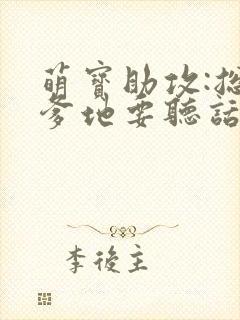 萌寶助攻:總
爹地要聽話
李後主